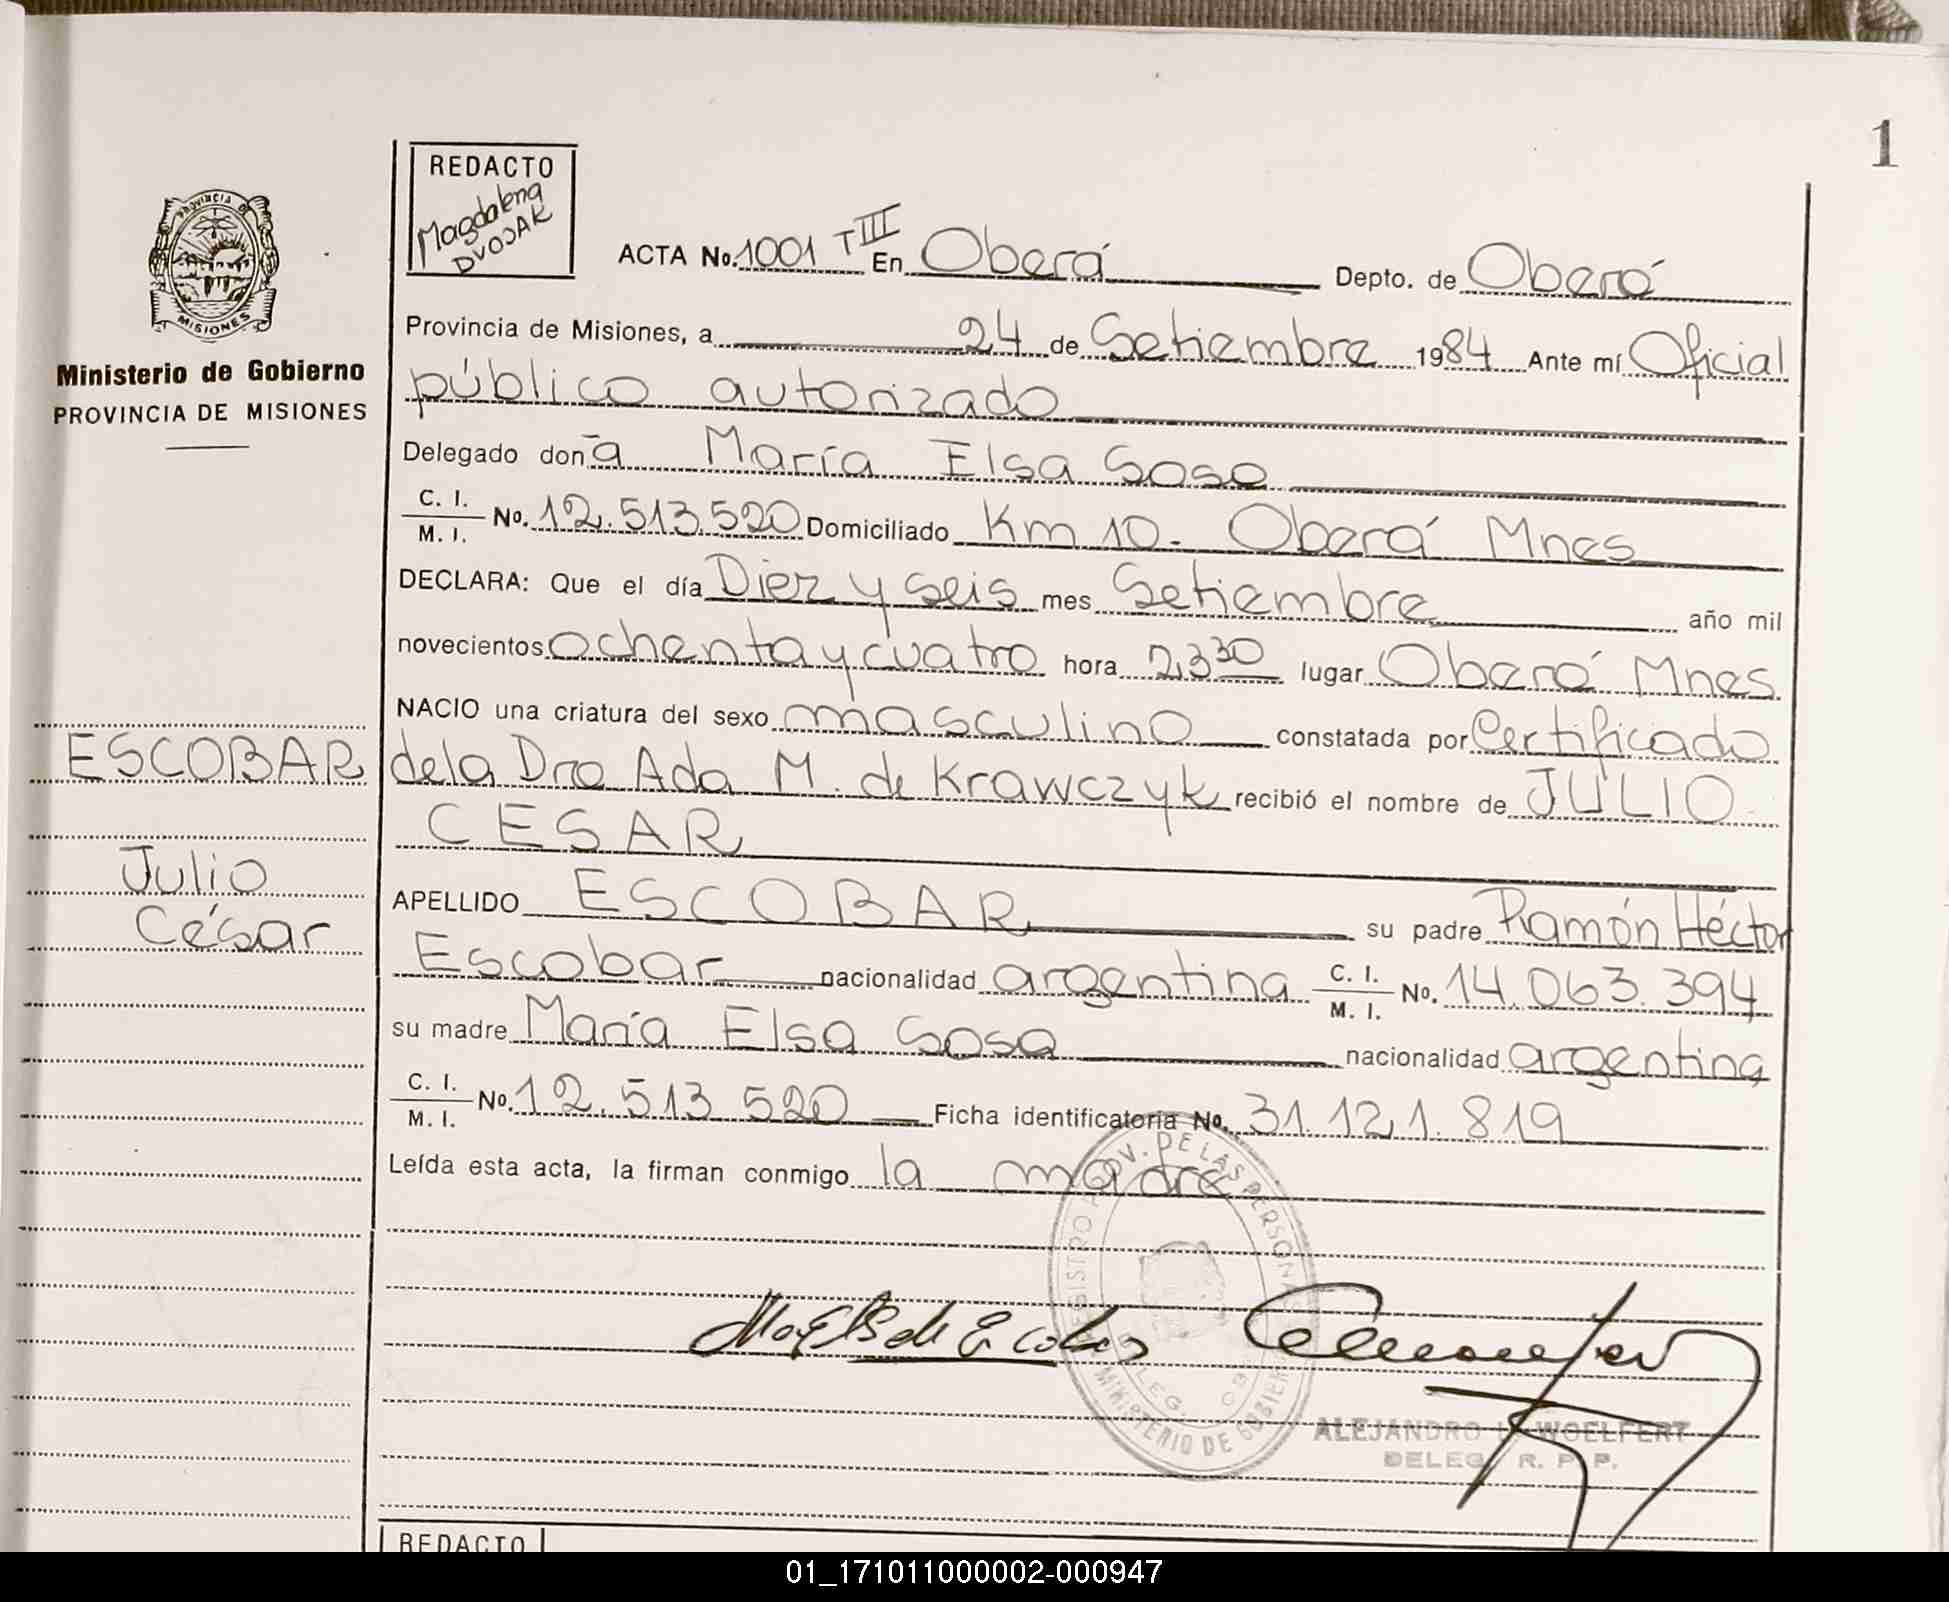 1
REDACTO
Magdalena
DVOJAK
PROVINCIA DE
MISIONES
Ministerio de Gobierno
PROVINCIA DE MISIONES
ACTA No. 1001 T III En Oberá Depto. de Oberá
Provincia de Misiones, a 24 de Setiembre 1984 Ante mí Oficial
público autorizado
Delegado doña María Elsa Sosa
C. I. / M. I. No. 12.513.520 Domiciliado Km 10. Oberá Mnes
DECLARA: Que el día Diez y seis mes Setiembre año mil
novecientos ochenta y cuatro hora 23 30 lugar Oberá Mnes
NACIO una criatura del sexo masculino constatada por Certificado
de la Dra Ada M. de Krawczyk recibió el nombre de JULIO
CESAR
ESCOBAR
Julio
César
APELLIDO ESCOBAR su padre Ramón Héctor
Escobar nacionalidad argentina C. I. / M. I. No. 14.063.394
su madre María Elsa Sosa nacionalidad argentina
C. I. / M. I. No. 12.513 520 Ficha identificatoria No. 31.121.819
Leída esta acta, la firman conmigo la madre
REGISTRO PROV. DE LAS PERSONAS
DELEG. OBERA
MINISTERIO DE GOBIERNO
ALEJANDRO L. WOELFERT
DELEG. R. P. P.
REDACTO
01_171011000002-000947